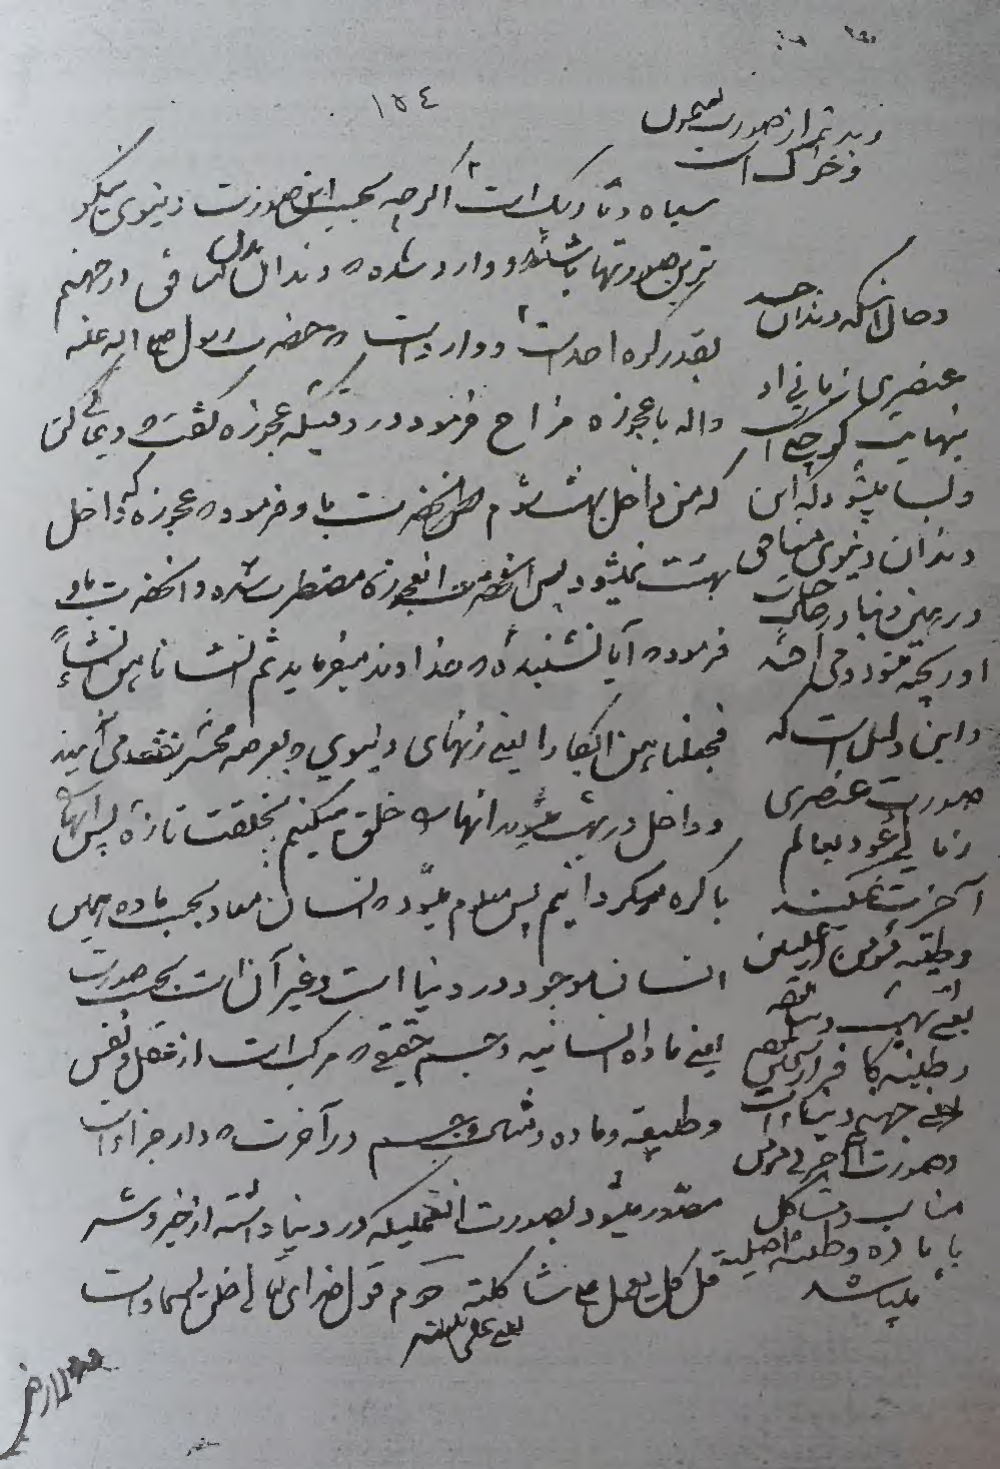 ١٥٤
و بدتر از صورت میمون
و خرک است
سیاه و تاریک است اگرچه بحسب این صورت دنیوی نیکو
ترین صورتها باشند و وارد شده که دندان کافر در جهنم
بقدر کوه احد است و وارد است که حضرت رسول صلی الله علیه
و اله با عجوزه مزاح فرمود در وقتیکه عجوزه گفت
که من داخل بهشت شوم حضرت باو فرمود که عجوزه داخل
بهشت نمیشود پس عجوزه مضطرب شده و انحضرت باو
فرمود که آیا نشنیدهٔ که خداوند میفرماید ثم انشاناهن انشاءً
فجعلناهن ابکارا یعنی زنهای دنیوی که بعرصه محشر می آیند
و داخل در بهشت میشوند انها را خلق میکنیم بخلقت تازه پس انها را
باکره میگردانیم پس معلوم میشود که انسان معاد بحسب ماده همین
انسان موجود در دنیا است و غیر آن است بحسب صورت
یعنی ماده انسانیه و جسم حقیقی که مرکب است از عقل و نفس
و طبیعه و ماده و مثال و جسم در آخرت که دار جزاء است
مصور میشود بصورت انعملیکه در دنیا داشته از خیر و شر
قل کل یعمل علی شاکلته سوم قول خدای تعالی خلق السماوات
یعنی علی
والارض
و حال انکه دندان جسد
عنصری زمانی او
نهایت کوچک است
و بسا میشود که این
دندان دنیوی
در همین دنیا در حال حیات
او ریخته میشود و می افتد
و این دلیل است که
صورت عنصری
زمانی عود بعالم
آخرت نمیکند
و طینه مؤمن از علیین
یعنی بهشت دنیا است
و طینه کافر از سجین
یعنی جهنم دنیا است
و صورت اخروی
مناسب و مشاکل
با ماده و طینه اصلیه
میباشد